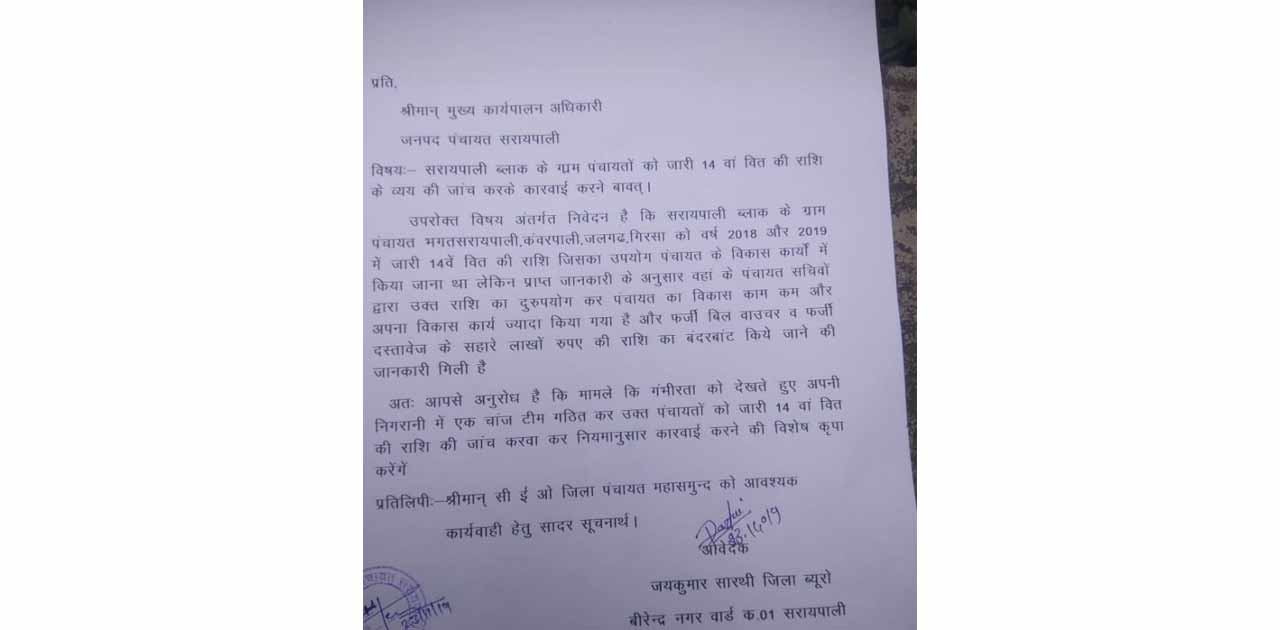 प्रति,
श्रीमान् मुख्य कार्यपालन अधिकारी
जनपद पंचायत सरायपाली
विषयः– सरायपाली ब्लाक के ग्राम पंचायतों को जारी 14 वां वित की राशि
के व्यय की जांच करके कारवाई करने बावत्।
उपरोक्त विषय अंतर्गत निवेदन है कि सरायपाली ब्लाक के ग्राम
पंचायत भगतसरायपाली,कंवरपाली,जलगढ,गिरसा को वर्ष 2018 और 2019
में जारी 14वें वित की राशि जिसका उपयोग पंचायत के विकास कार्यों में
किया जाना था लेकिन प्राप्त जानकारी के अनुसार वहां के पंचायत सचिवों
द्वारा उक्त राशि का दुरुपयोग कर पंचायत का विकास काम कम और
अपना विकास कार्य ज्यादा किया गया है और फर्जी बिल वाउचर व फर्जी
दस्तावेज के सहारे लाखों रुपए की राशि का बंदरबांट किये जाने की
जानकारी मिली है
अतः आपसे अनुरोध है कि मामले कि गंभीरता को देखते हुए अपनी
निगरानी में एक चांज टीम गठित कर उक्त पंचायतों को जारी 14 वां वित
की राशि की जांच करवा कर नियमानुसार कारवाई करने की विशेष कृपा
करेंगें
प्रतिलिपीः–श्रीमान् सी ई ओ जिला पंचायत महासमुन्द को आवश्यक
कार्यवाही हेतु सादर सूचनार्थ।
आवेदक
जयकुमार सारथी जिला ब्यूरो
बीरेन्द्र नगर वार्ड क.01 सरायपाली